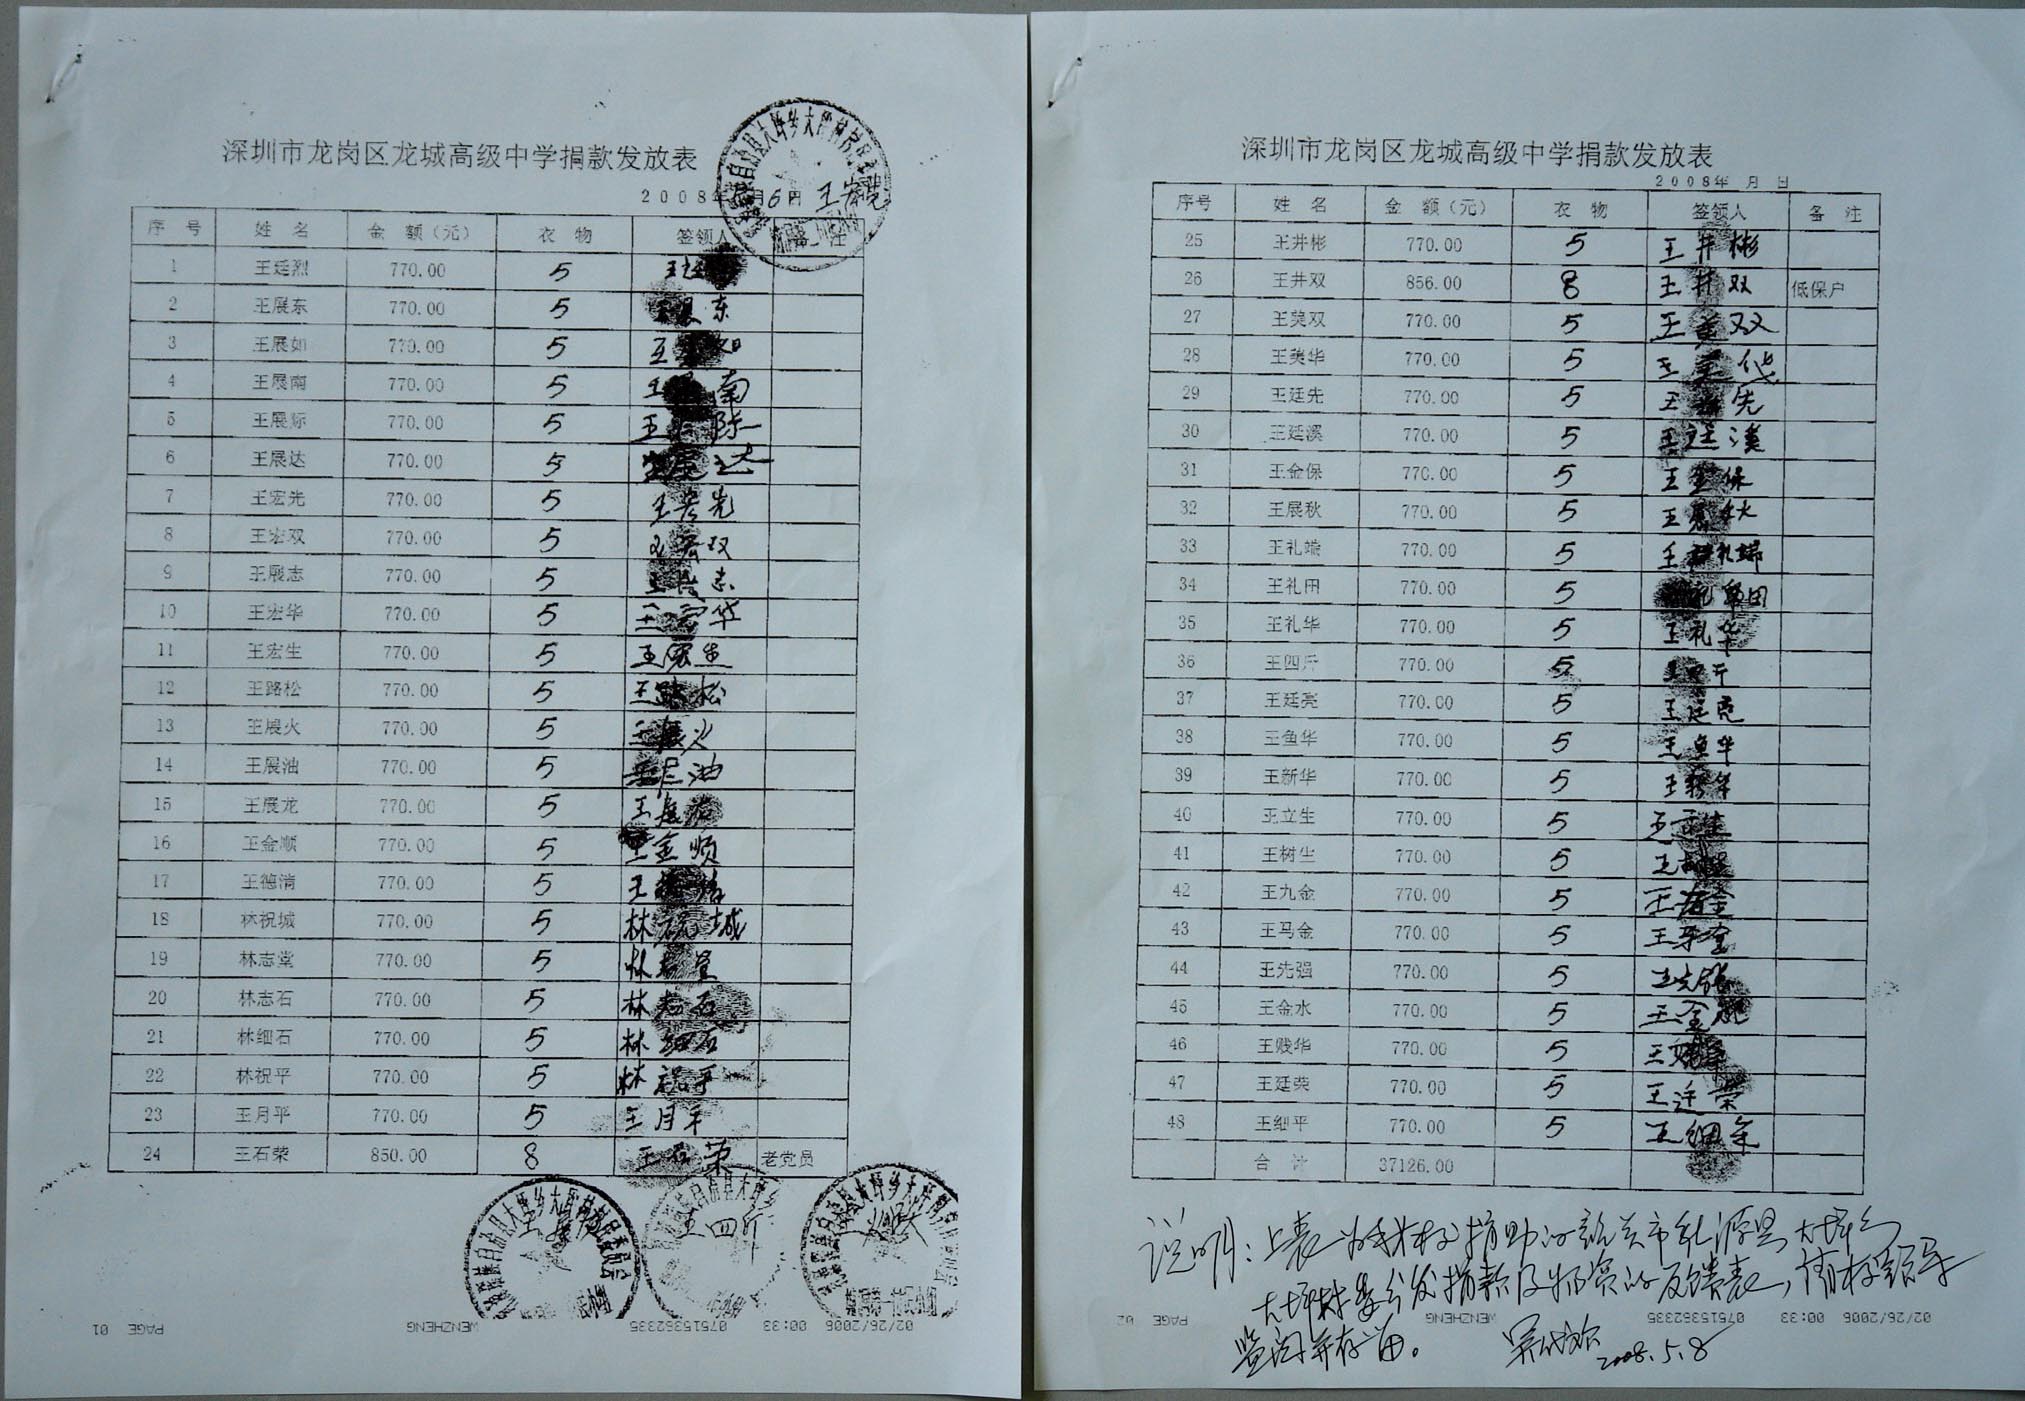 深圳市龙岗区龙城高级中学捐款发放表
2008年 月6日
序 号 姓 名 金 额（元） 衣 物 签领人 备 注
1 王廷烈 770.00 5
2 王展东 770.00 5 王展东
3 王展如 770.00 5 王 如
4 王展南 770.00 5 王 南
5 王展际 770.00 5 王 际
6 王展达 770.00 5 王展达
7 王宏先 770.00 5 王宏先
8 王宏双 770.00 5 王宏双
9 王展志 770.00 5 王 志
10 王宏华 770.00 5 王宏华
11 王宏生 770.00 5 王宏生
12 王路松 770.00 5 王路松
13 王展火 770.00 5 王展火
14 王展油 770.00 5 王展油
15 王展龙 770.00 5 王展龙
16 王金顺 770.00 5 王金顺
17 王德清 770.00 5 王德清
18 林祝城 770.00 5 林祝城
19 林志堂 770.00 5 林志堂
20 林志石 770.00 5 林志石
21 林细石 770.00 5 林细石
22 林祝平 770.00 5 林祝平
23 王月平 770.00 5 王月平
24 王石荣 850.00 8 王石荣 老党员
王四斤
02/26/2006 00:33 07515362335 WENZHENG PAGE 01
深圳市龙岗区龙城高级中学捐款发放表
2008年 月 日
序号 姓 名 金 额（元） 衣 物 签领人 备 注
25 王井彬 770.00 5 王井彬
26 王井双 856.00 8 王井双 低保户
27 王美双 770.00 5 王美双
28 王美华 770.00 5 王美华
29 王廷先 770.00 5 王 先
30 王廷溪 770.00 5 王廷溪
31 王金保 770.00 5 王金保
32 王展秋 770.00 5 王展秋
33 王礼端 770.00 5 王礼端
34 王礼田 770.00 5 礼田
35 王礼华 770.00 5 王礼华
36 王四斤 770.00 5 王四斤
37 王廷亮 770.00 5 王廷亮
38 王鱼华 770.00 5 王鱼华
39 王新华 770.00 5 王新华
40 王立生 770.00 5 王立生
41 王树生 770.00 5 王树生
42 王九金 770.00 5 王 金
43 王马金 770.00 5 王马金
44 王先强 770.00 5 王先强
45 王金水 770.00 5 王金水
46 王贱华 770.00 5 王 华
47 王廷荣 770.00 5 王廷荣
48 王细平 770.00 5 王细平
合 计 37126.00
说明：上表为我校捐助的韶关市乳源县大坪乡
大坪村委分发捐款及物资的反馈表，请校领导
鉴阅并存留。
2008.5.8
02/26/2006 00:33 07515362335 WENZHENG PAGE 02